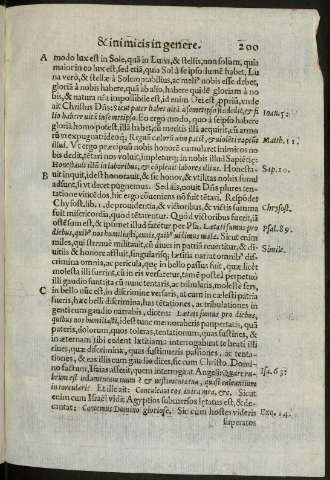 & inimicis in genere. 200
A modo lux est in Sole, quā in Luna, & stellis, non solum, quia
maior in eo lux est, sed etiā, quia Sol à se ipso lumē habet, Lu
na verò, & stellæ à Solem nobilius, ac meliº nobis esse debet,
gloriā à nobis habere, quā ab alio, habere quidē gloriam à no
bis, & natura nře impossibile est, id enim Dei est ,ppriū, vnde
ait Christus Dñs: Sicut pater habet vitā à semetipso, sic dedit, & fi Ioan. 5.
lio habere vitā in semetipso. Eo ergo modo, quo à se ipso habere
gloriā homo potest, illā habet, cū meritis illā acquirit, cū arma
tº vi expugnat eā deoq; Regnū cælorū vim patitur, & violēti rapiūt Matth. 11.
illud. Vt ergo præcipuo nobis honore cumularet inimicos no
bis dedit, tētari nos voluit, impleturq; in nobis illud Sapiētię:
Honestauit illū in laboribus, & cōpleuit labores illius. Honesta- Sap. 10.
B uit inquit, idest honorauit, & sic honor, & vtilitas nobis simul
adsunt, si vt decet pugnemus. Sed ais, nouit Dñs plures ten-
tatione vincēdos, his ergo cōueniens nō fuit tētari. Respōdet
Chrysost. lib. 1. de prouidentia, & victoribus, & victis summa Chrysost.
fuit misericordia, quod tētarentur. Quòd victoribus fuerit, iā
ostēsum est, & ipsummet illud fatetur per Psa. Lætati sumus pro Psal. 89.
diebus, quibº nos humiliasti, annis, quibº vidimus mala. Sicut enim
miles, qui strenuè militauit, cū aliues in patriā reuertitur, & di- Simile.
uitijs & honore affluit, singularisq; lætitia narrat omnibº di-
crimina omnia, ac pericula, quę in bello passus fuit, quæ licet
molesta illi fuerint, cū in eis versaretur, tamē posteà perpetuò
illi gaudio sunt ita cū nunc tentaris, ac tribularis, molestè fers
C in bello nūc es, in discrimine versaris, at cum in cælesti patria
fueris, hæc belli discrimina, has tētationes, ac tribulationes in
genti cum gaudio narrabis, dicens: Lætati sumus pro diebus,
quibus nos humiliasti, idest tunc memoraberis paupertatis, quā
pateris, dolorum, quos toleras, tentationum, quas sustines, &
in æternam tibi cedent lætitiam: interrogabunt te beati illi
ciues, quæ discrimina, quas sustinuerit passiones, ac tenta-
tiones, & eos illis cum gaudio dices, sic cum Christo Domi-
no factum, Isaias asserit, quem interrogant Angeli: Quare ru- Isa. 63.
brum est indumentum tuum & vestimenta tua, quasi calcantium
in torculari? Et ille ait: Conculcaui eos in ira mea, &c. Sicut
enim cum Israel vidit Aegyptios submersos lętatus est, & de-
cantat: Cantemus Domino gloriose. Sic cum hostes videris Exo. 14.
superatos